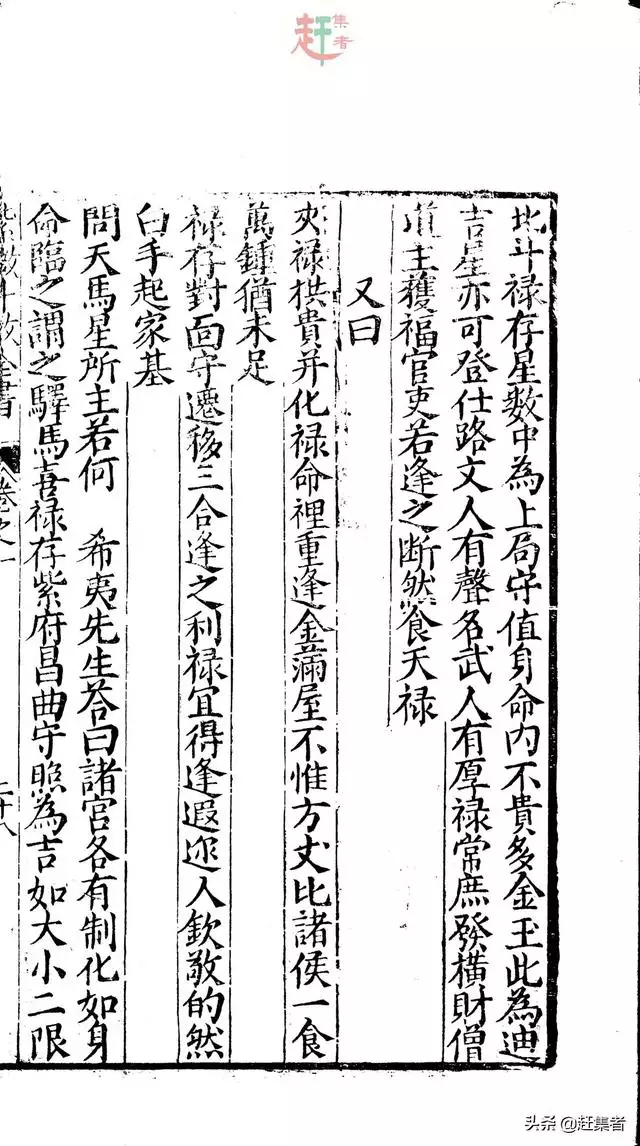 赶集者
北斗禄存星數中為上局守值身命内不貴多金玉此為迪
吉星亦可登仕路文人有聲名武人有厚禄常庶發横財僧
道主獲福官吏若逢之断然食天禄
又曰
夾禄拱貴并化禄命裡重逢金滿屋不惟方丈比諸侯一食
萬鍾猶未足
禄存對面守遷移三合逢之利禄宜得逢遐迩人欽敬的然
白手起家基
問天馬星所主若何 希夷先生荅曰諸宫各有制化如身
命臨之謂之驛馬喜禄存紫府昌曲守照為吉如大小二限
數斗數全書 卷之一 二十八
头条 @赶集者